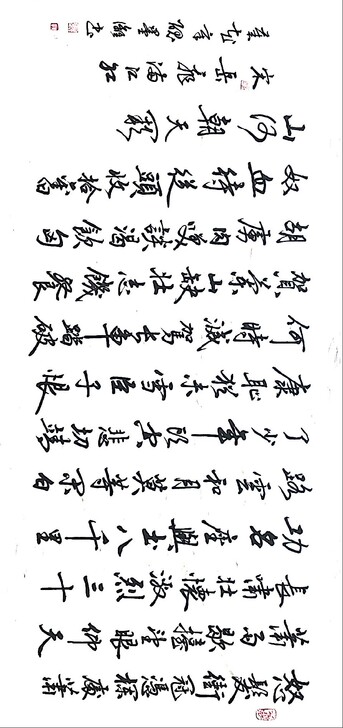 怒髮衝冠憑欄處蕭
蕭雨歇擡望眼仰天
長嘯壯懷激烈三十
功名塵與土八千里
路雲和月莫等閑白
了少年頭空悲切靖
康恥猶未雪臣子恨
何時滅駕長車踏破
賀蘭山缺壯志飢餐
胡虜肉笑談渴飲匈
奴血待從頭收拾舊
山河朝天闕
宋岳飛滿江紅